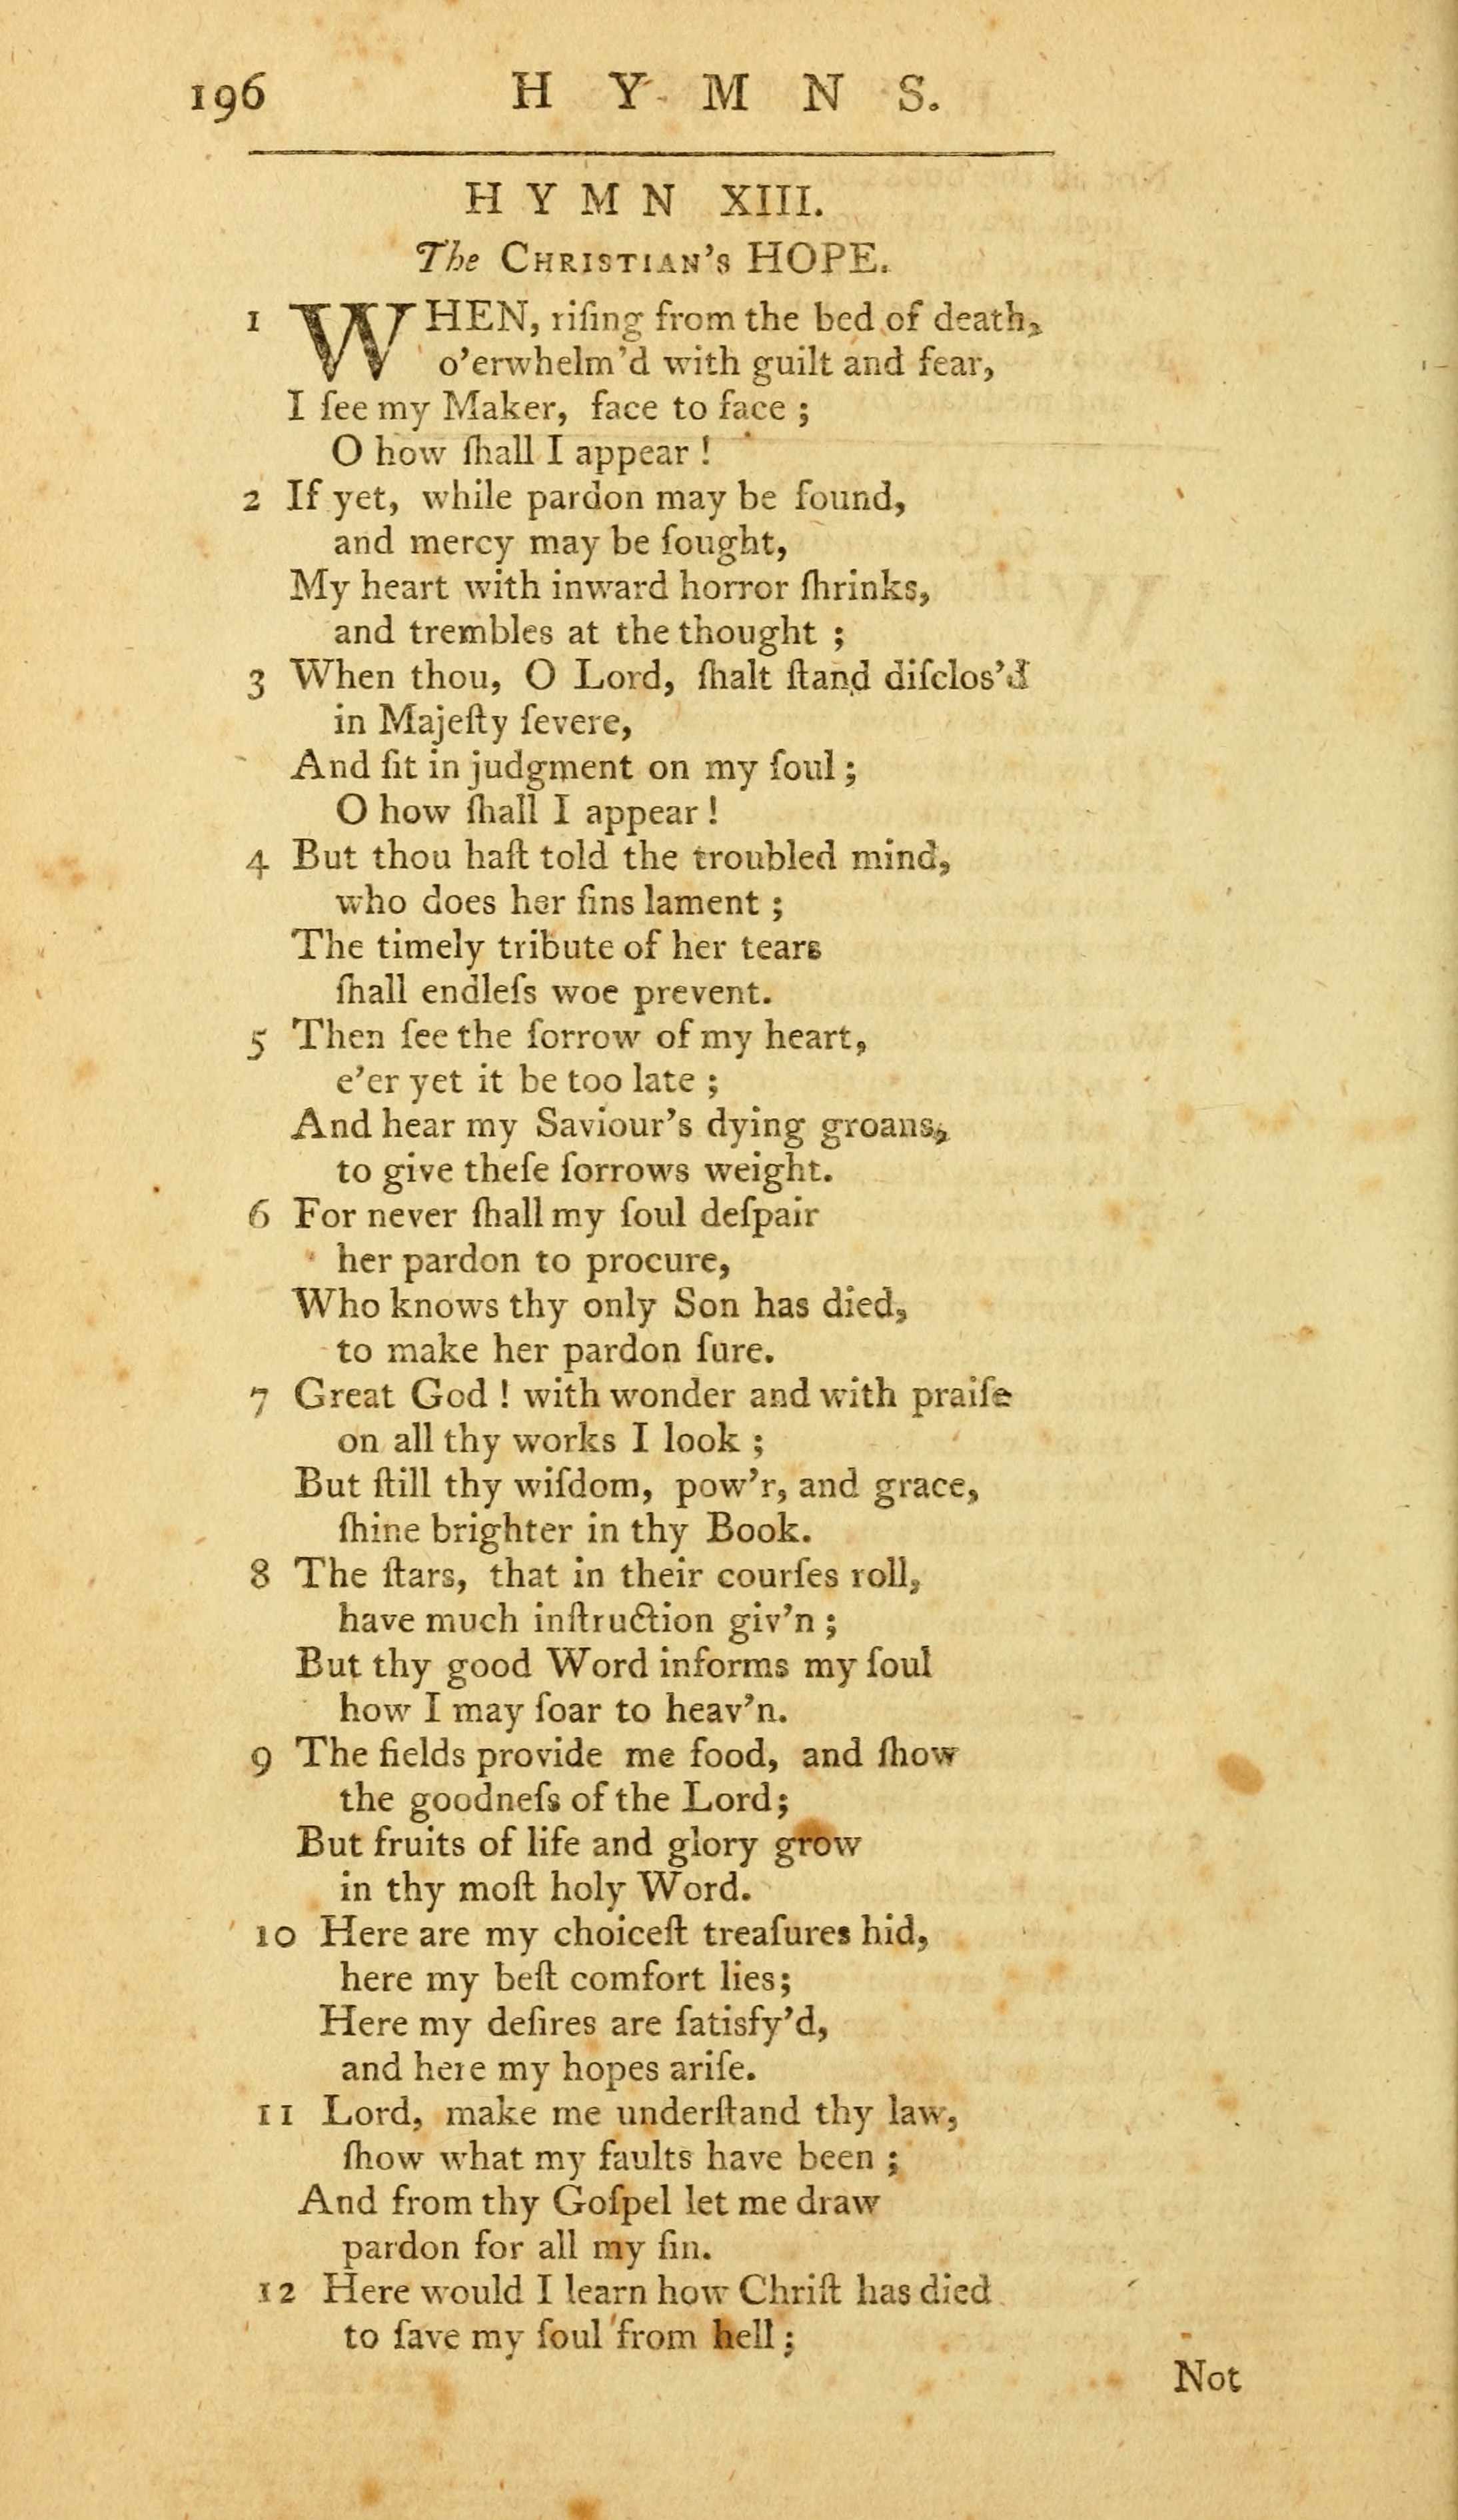 196 H Y M N S.
H Y M N XIII.
The CHRISTIAN's HOPE.
1 WHEN, riſing from the bed of death,
o'erwhelm'd with guilt and fear,
I ſee my Maker, face to face ;
O how ſhall I appear !
2 If yet, while pardon may be found,
and mercy may be ſought,
My heart with inward horror ſhrinks,
and trembles at the thought ;
3 When thou, O Lord, ſhalt ſtand diſclos'd
in Majeſty ſevere,
And ſit in judgment on my ſoul ;
O how ſhall I appear !
4 But thou haſt told the troubled mind,
who does her ſins lament ;
The timely tribute of her tears
ſhall endleſs woe prevent.
5 Then ſee the ſorrow of my heart,
e'er yet it be too late ;
And hear my Saviour's dying groans,
to give theſe ſorrows weight.
6 For never ſhall my ſoul deſpair
her pardon to procure,
Who knows thy only Son has died,
to make her pardon ſure.
7 Great God ! with wonder and with praiſe
on all thy works I look ;
But ſtill thy wiſdom, pow'r, and grace,
ſhine brighter in thy Book.
8 The ſtars, that in their courſes roll,
have much inſtruction giv'n ;
But thy good Word informs my ſoul
how I may ſoar to heav'n.
9 The fields provide me food, and ſhow
the goodneſs of the Lord;
But fruits of life and glory grow
in thy moſt holy Word.
10 Here are my choiceſt treaſures hid,
here my beſt comfort lies;
Here my deſires are ſatisfy'd,
and here my hopes ariſe.
11 Lord, make me underſtand thy law,
ſhow what my faults have been ;
And from thy Goſpel let me draw
pardon for all my ſin.
12 Here would I learn how Chriſt has died
to ſave my ſoul from hell ;
Not